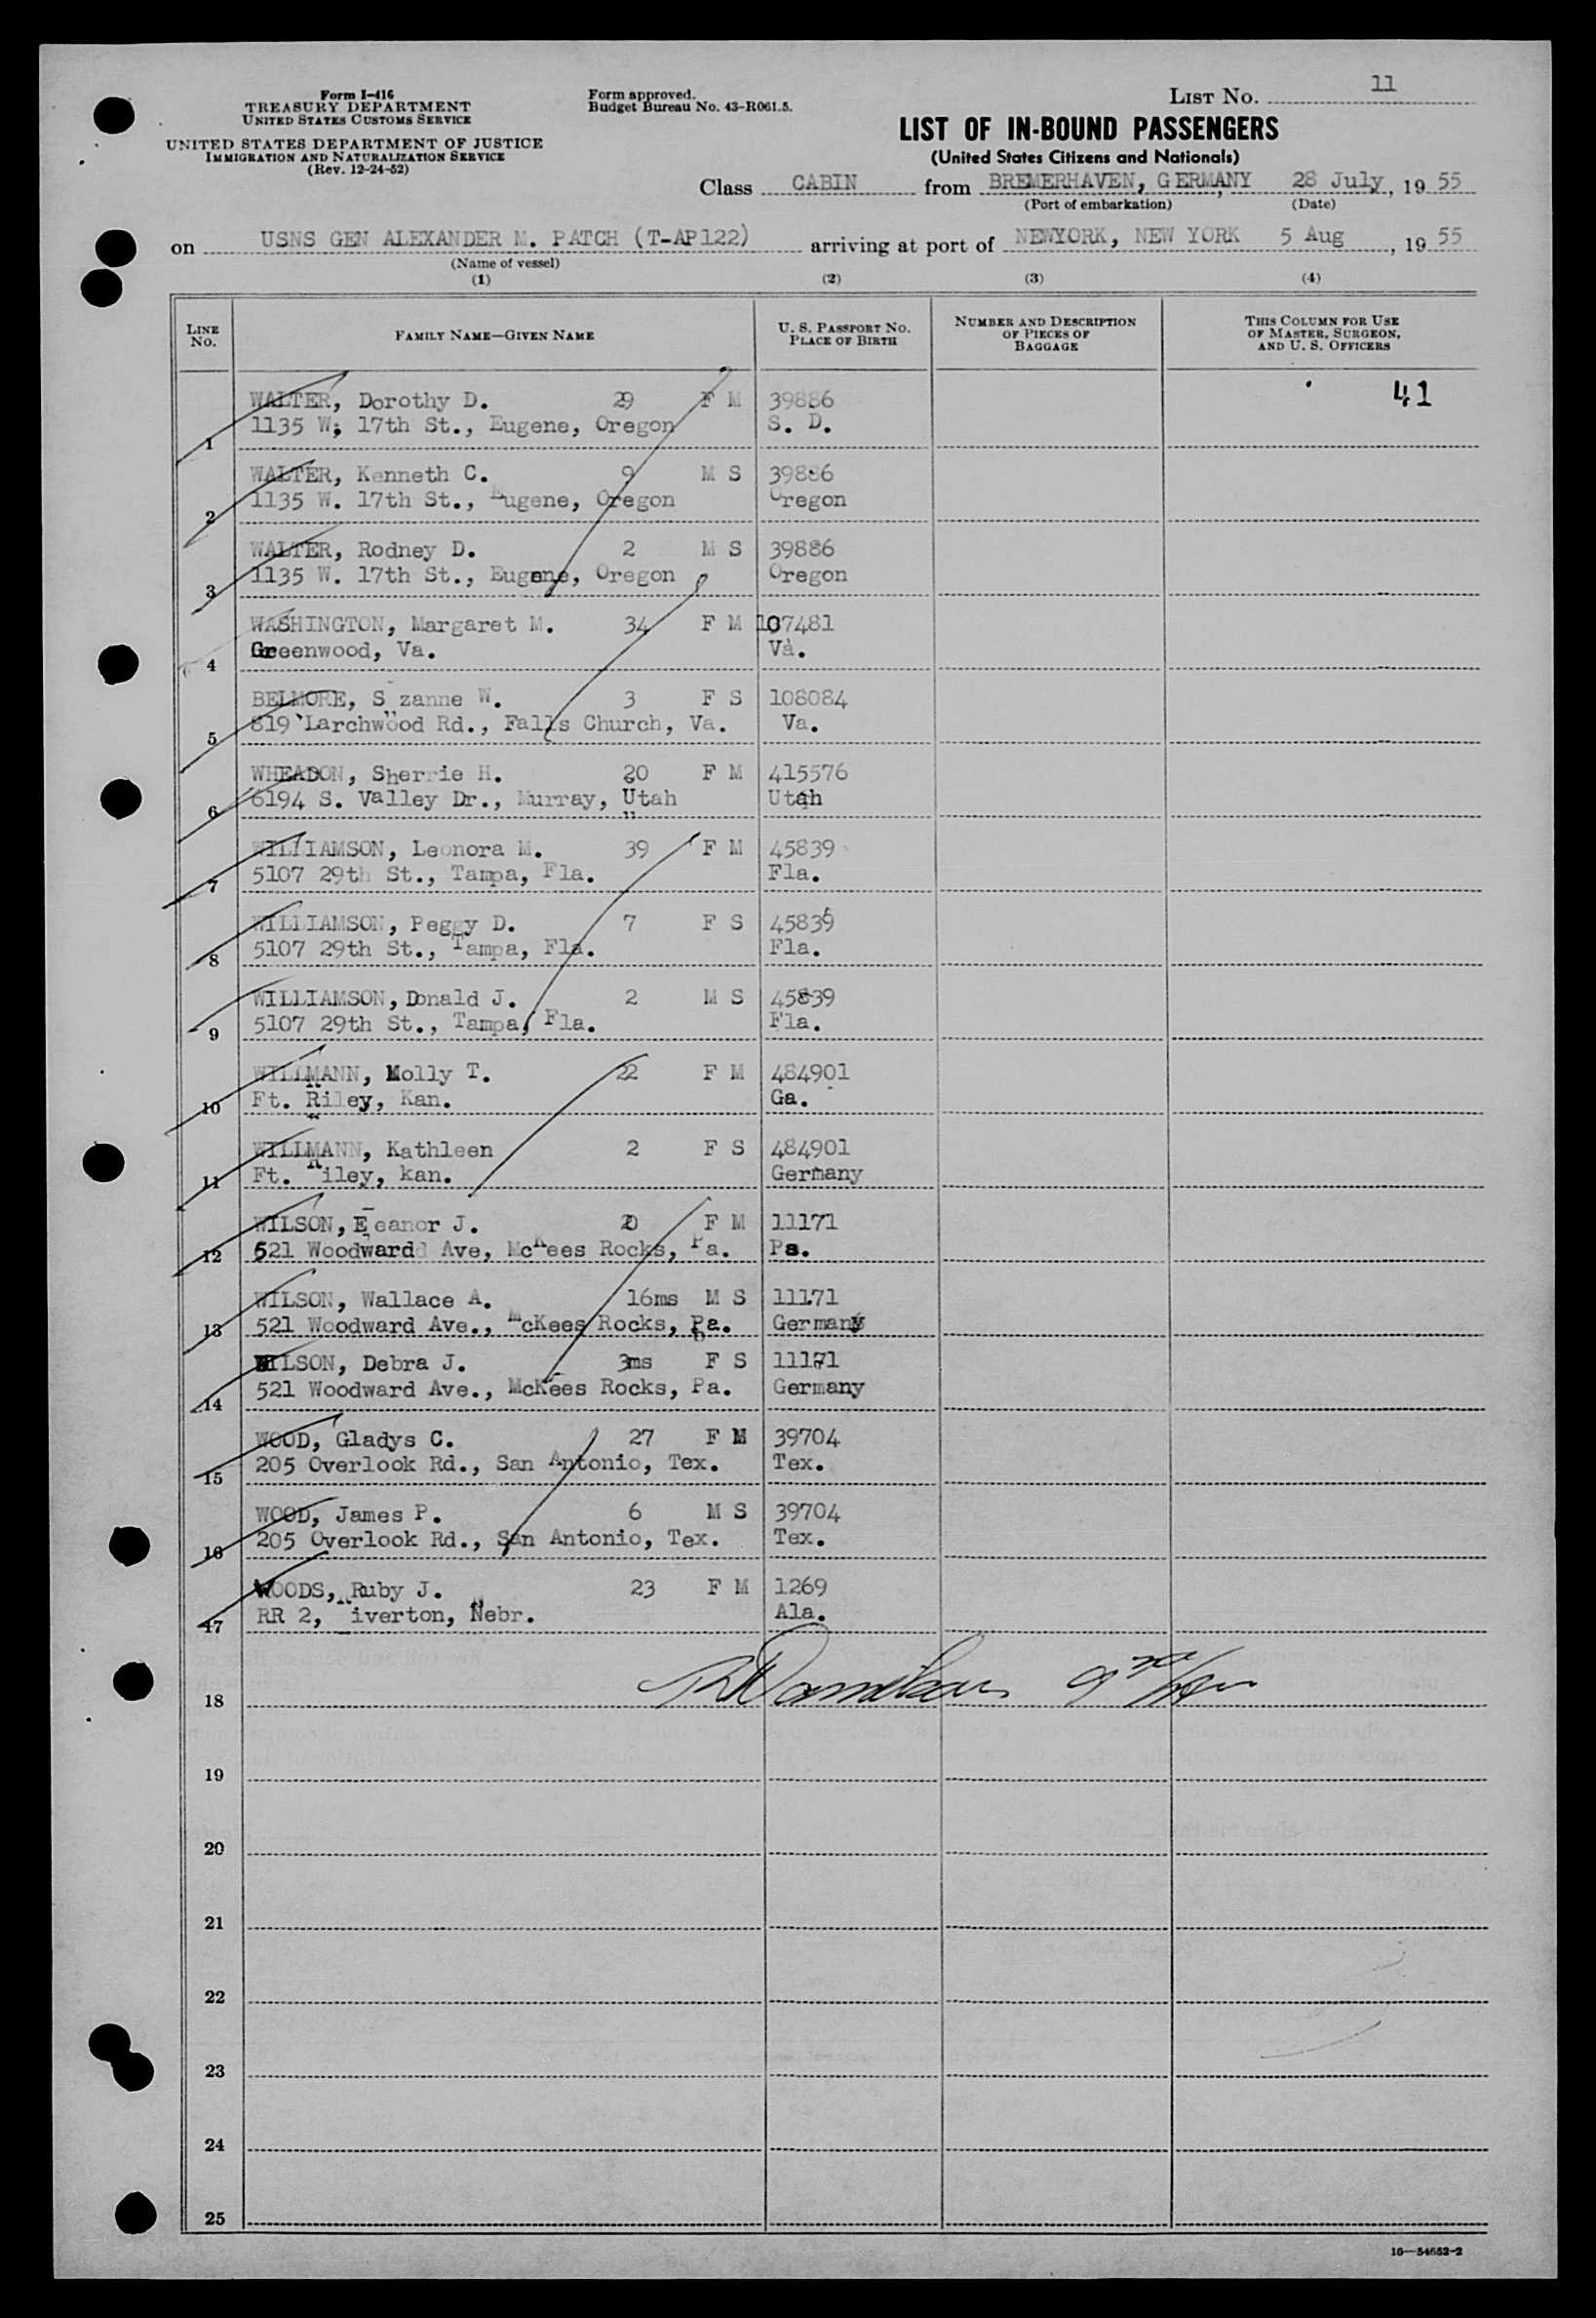 Form I-416
TREASURY DEPARTMENT
UNITED STATES CUSTOMS SERVICE
UNITED STATES DEPARTMENT OF JUSTICE
IMMIGRATION AND NATURALIZATION SERVICE
(Rev. 12-24-52)
Form approved.
Budget Bureau No. 43-R061.5.
LIST No. 11
LIST OF IN-BOUND PASSENGERS
(United States Citizens and Nationals)
Class CABIN from BREMERHAVEN, GERMANY 28 July, 19 55
(Port of embarkation) (Date)
on USNS GEN ALEXANDER M. PATCH (T-AP122) arriving at port of NEWYORK, NEW YORK 5 Aug, 19 55
(Name of vessel)
(1) (2) (3) (4)
LINE No. FAMILY NAME—GIVEN NAME U. S. PASSPORT No. PLACE OF BIRTH NUMBER AND DESCRIPTION OF PIECES OF BAGGAGE THIS COLUMN FOR USE OF MASTER, SURGEON, AND U. S. OFFICERS
WALTER, Dorothy D. 29 F M 39886 41
1 1135 W. 17th St., Eugene, Oregon S. D.
WALTER, Kenneth C. 9 M S 39886
2 1135 W. 17th St., Eugene, Oregon Oregon
WALTER, Rodney D. 2 M S 39886
3 1135 W. 17th St., Eugene, Oregon Oregon
WASHINGTON, Margaret M. 34 F M 107481
4 Greenwood, Va. Va.
BELMORE, S zanne W. 3 F S 108084
5 619 Larchwood Rd., Falls Church, Va. Va.
WHEADON, Sherrie H. 20 F M 415576
6 6194 S. Valley Dr., Murray, Utah Utah
WILLIAMSON, Leonora M. 39 F M 45839
7 5107 29th St., Tampa, Fla. Fla.
WILLIAMSON, Peggy D. 7 F S 45839
8 5107 29th St., Tampa, Fla. Fla.
WILLIAMSON, Donald J. 2 M S 45839
9 5107 29th St., Tampa, Fla. Fla.
WILLMANN, Molly T. 22 F M 484901
10 Ft. Riley, Kan. Ga.
WILLMANN, Kathleen 2 F S 484901
11 Ft. Riley, kan. Germany
WILSON, Eleanor J. 20 F M 11171
12 521 Woodward Ave, McKees Rocks, Pa. Pa.
WILSON, Wallace A. 16ms M S 11171
13 521 Woodward Ave., McKees Rocks, Pa. Germany
WILSON, Debra J. 3ms F S 11171
14 521 Woodward Ave., McKees Rocks, Pa. Germany
WOOD, Gladys C. 27 F M 39704
15 205 Overlook Rd., San Antonio, Tex. Tex.
WOOD, James P. 6 M S 39704
16 205 Overlook Rd., San Antonio, Tex. Tex.
WOODS, Ruby J. 23 F M 1269
17 RR 2, Riverton, Nebr. Ala.
18
19
20
21
22
23
24
25
16—54652-2